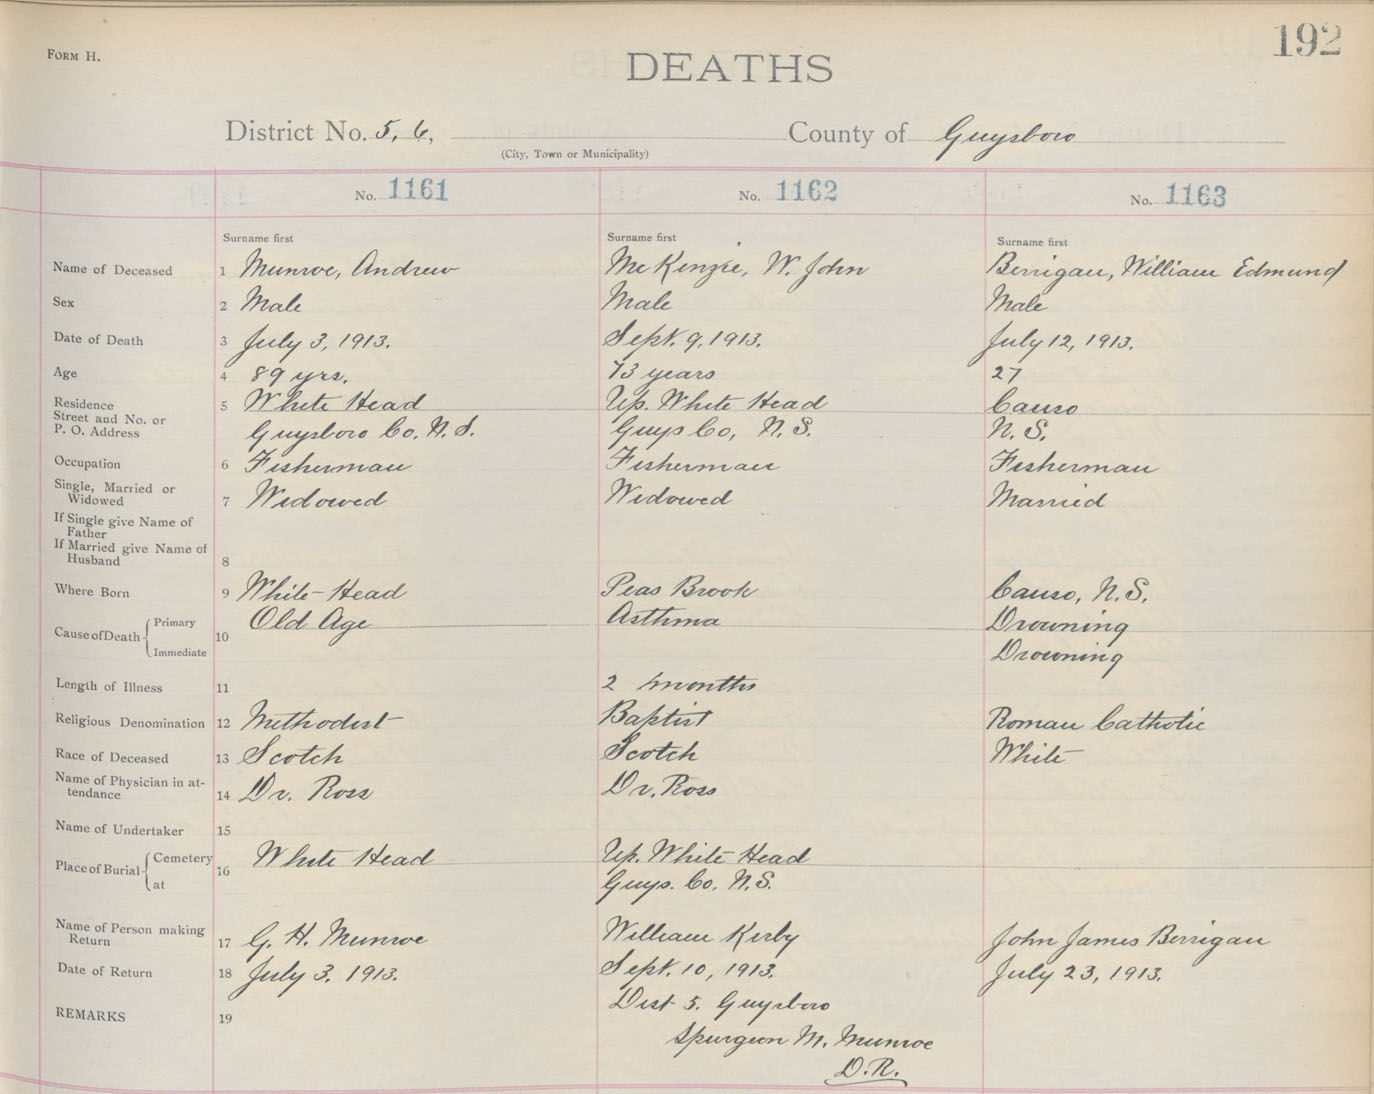 192
FORM H.
DEATHS
District No. 5, 6, County of Guysboro
(City, Town or Municipality)
No. 1161 No. 1162 No. 1163
Surname first Surname first Surname first
Name of Deceased 1 Munroe, Andrew McKenzie, W. John Berrigan, William Edmund
Sex 2 Male Male Male
Date of Death 3 July 3, 1913. Sept. 9, 1913. July 12, 1913.
Age 4 89 yrs. 73 years 27
Residence 5 White Head Up. White Head Canso
Street and No. or
P. O. Address Guysboro Co. N. S. Guys Co, N. S. N. S.
Occupation 6 Fisherman Fisherman Fisherman
Single, Married or
Widowed 7 Widowed Widowed Married
If Single give Name of
Father
If Married give Name of
Husband 8
Where Born 9 White-Head Peas Brook Canso, N. S.
Cause of Death Primary 10 Old Age Asthma Drowning
Immediate Drowning
Length of Illness 11 2 months
Religious Denomination 12 Methodist Baptist Roman Catholic
Race of Deceased 13 Scotch Scotch White
Name of Physician in at-
tendance 14 Dr. Ross Dr. Ross
Name of Undertaker 15
Place of Burial Cemetery 16 White Head Up. White Head
at Guys. Co. N. S.
Name of Person making
Return 17 G. H. Munroe William Kirby John James Berrigan
Date of Return 18 July 3. 1913. Sept. 10, 1913. July 23, 1913.
REMARKS 19 Dist 5. Guysboro
Spurgeon M. Munroe
D. R.